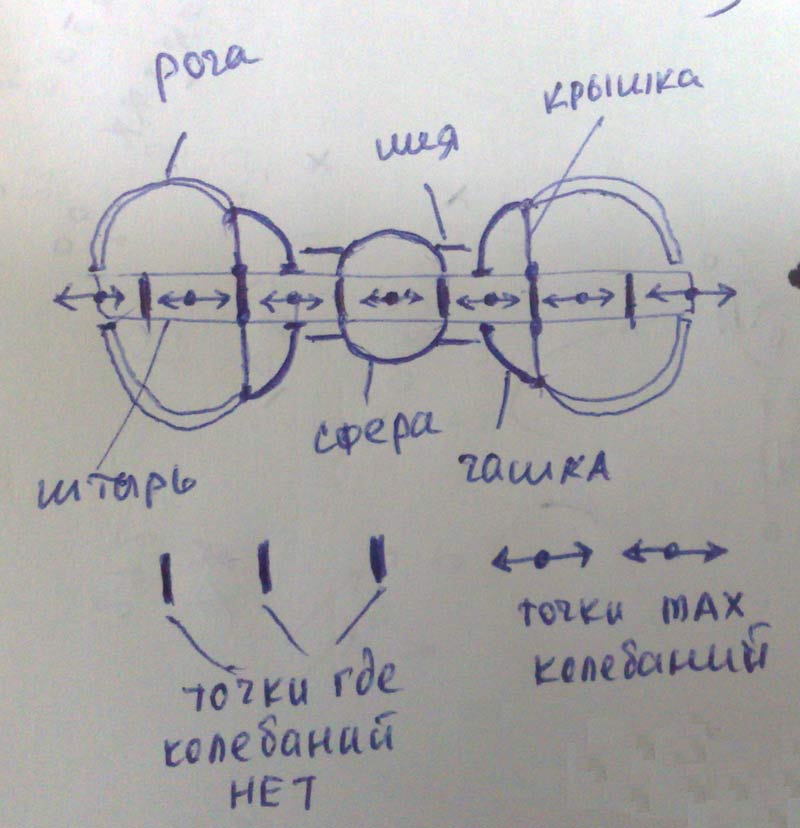 рога
крышка
шея
сфера
чашка
штырь
точки MAX
колебаний
точки где
колебаний
НЕТ